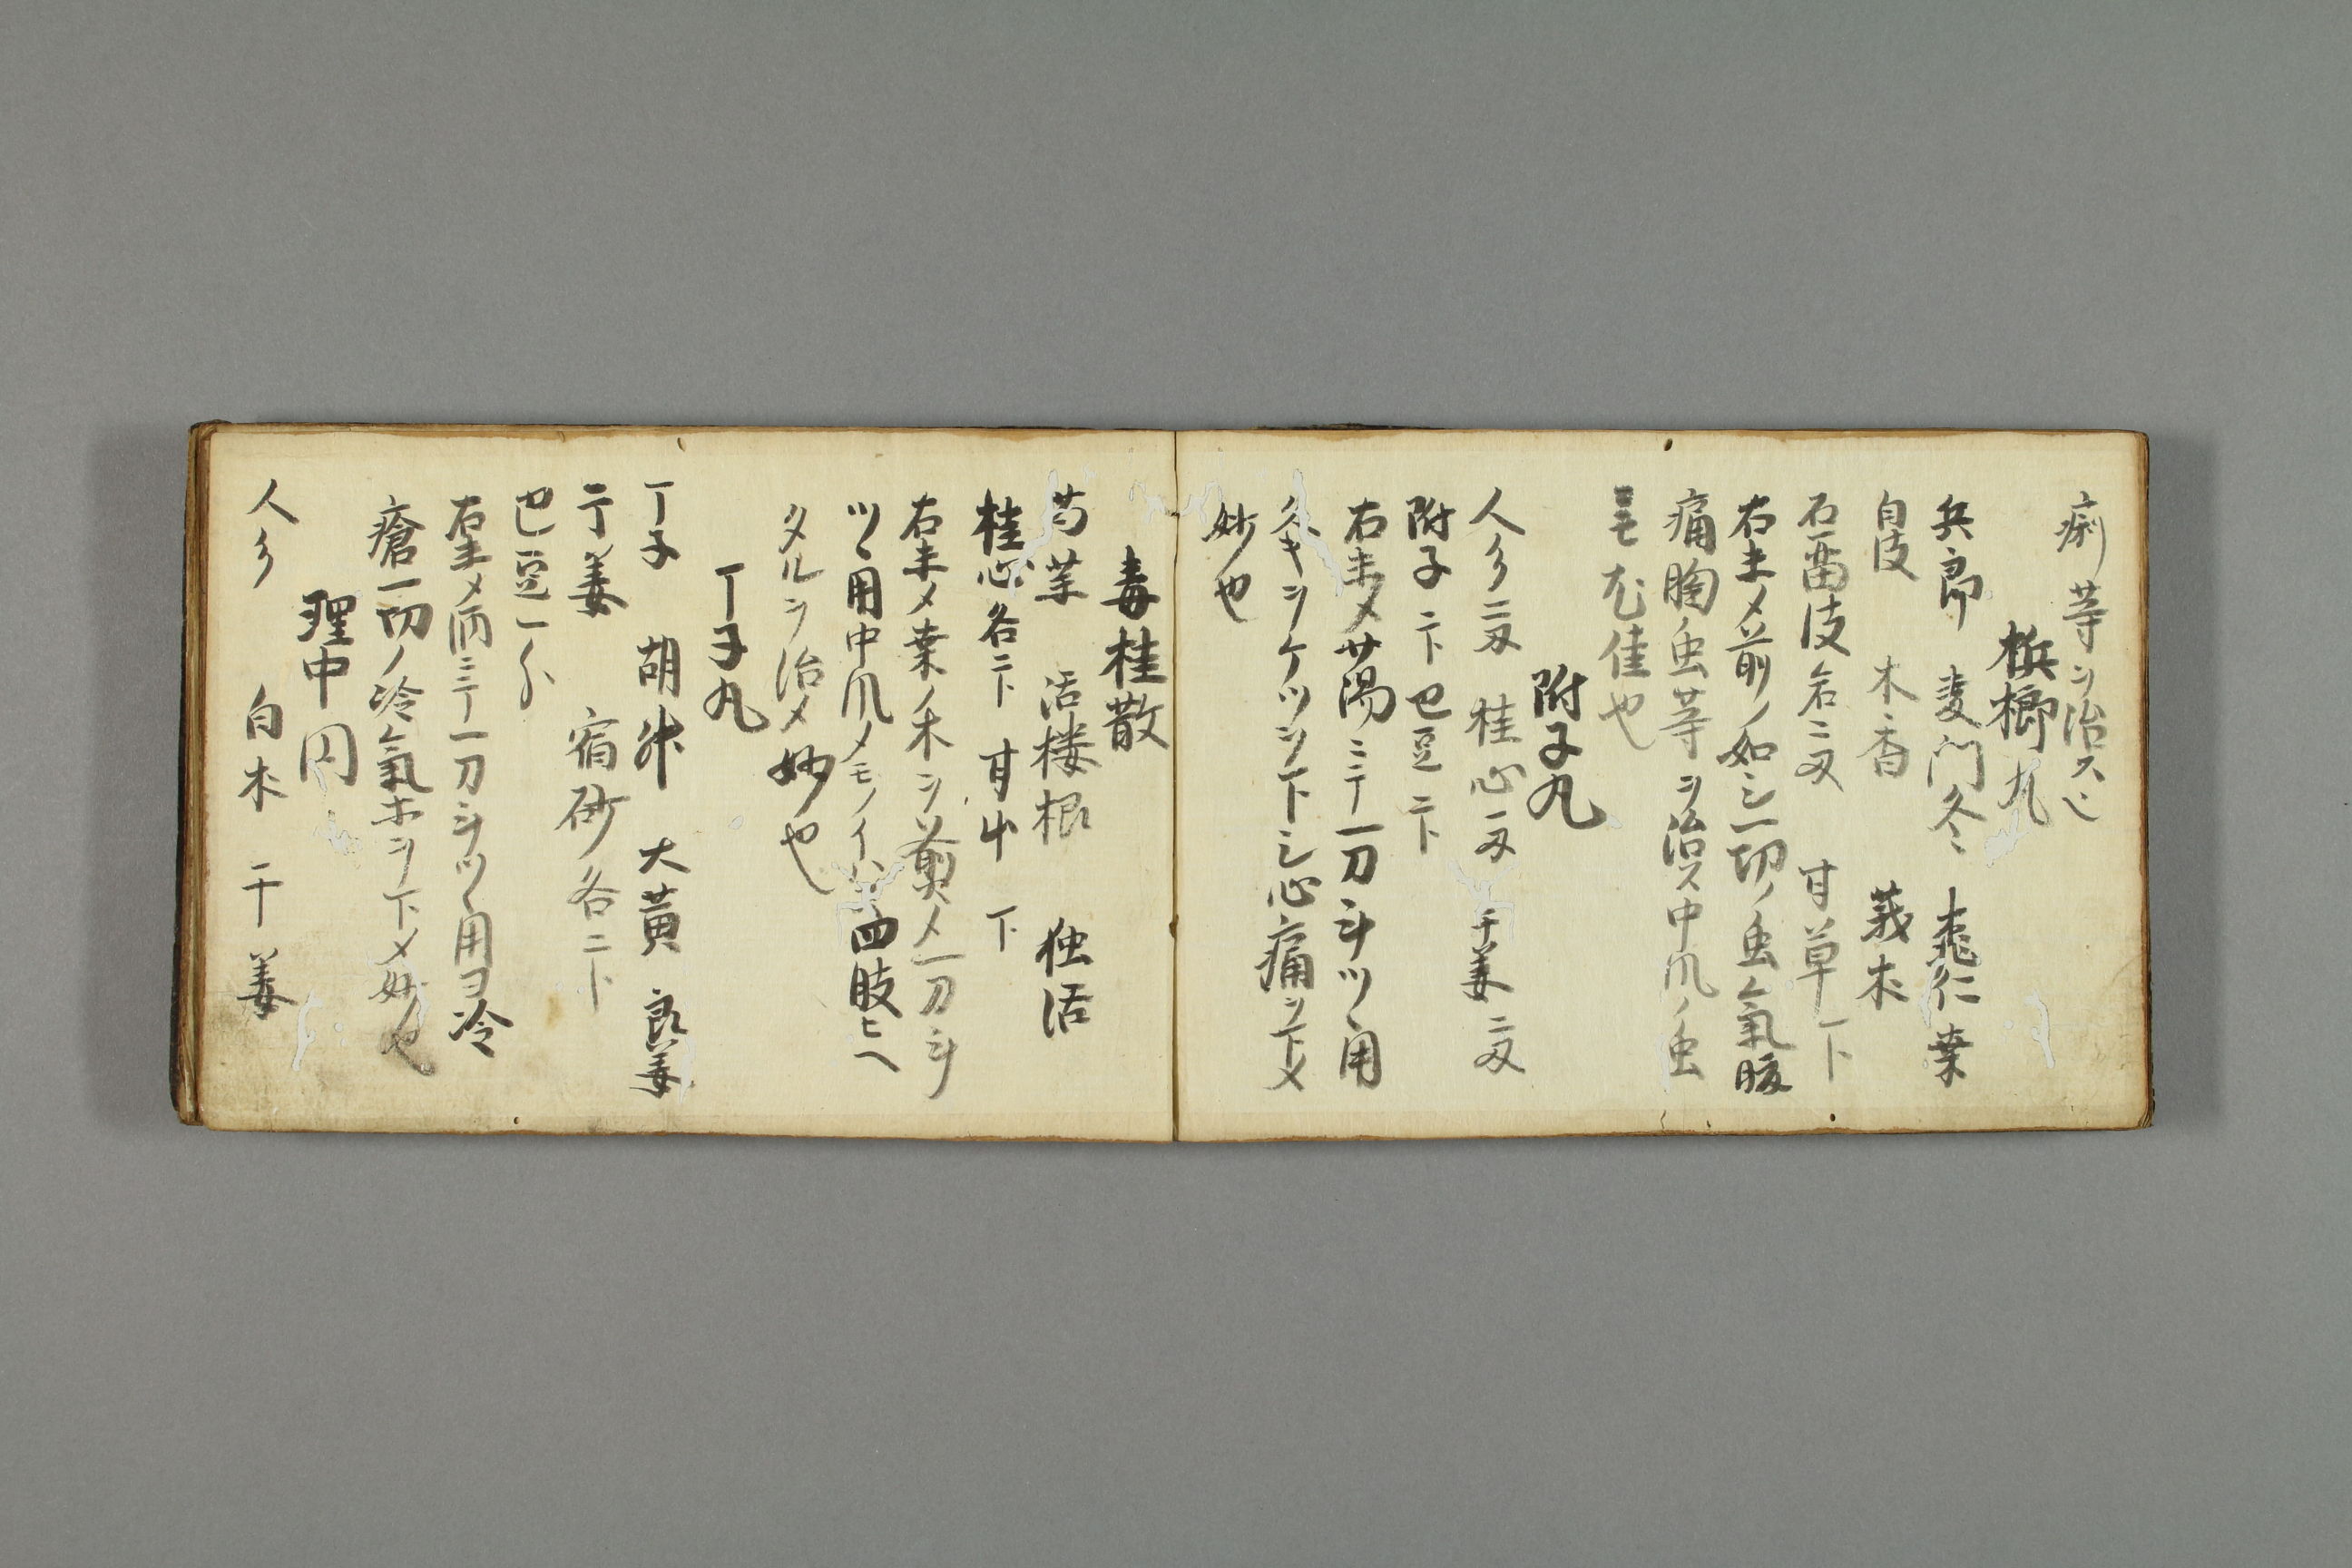 痢等ヲ治スヘシ
梹榔丸
兵郎 麦門冬 桃仁 葉
白皮 木香 莪朮
石畄皮 各二匁 甘草一下
右末メ前ノ如シ一切ノ虫氣腹
痛胸虫等ヲ治ス中風ノ虫
ニモ尤佳也
附子丸
人参二匁 桂心一匁 干姜二匁
附子二下 巴豆二下
右末メ甘湯ニテ一刀斗ツヽ用
久キヲケツヲ下シ心痛ヲ下メ
妙也
毒桂散
芎芋 活楼根 独活
桂心各二下 甘中 下
右末メ葉ノ禾ヲ煎メ一刀斗
ツヽ用中風ノモノイハ四肢ヒヘ
タルヲ治メ妙也
丁子丸
丁子 胡升 大黄 良姜
干姜 宿砂各二下
巴豆一分
右末メ酒ニテ一刀斗ツヽ用ヨ冷
瘡一切ノ冷氣ホヲ下メ妙也
理中円
人参 白朮 干姜